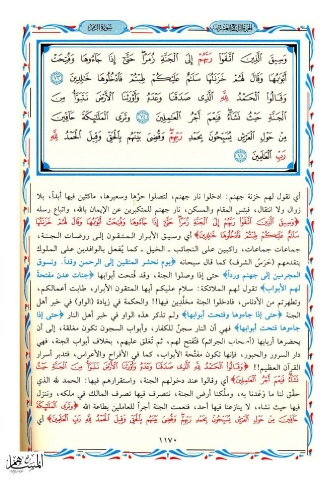 سورة الزمر
وَسِيقَ الَّذِينَ اتَّقَوْا رَبَّهُمْ إِلَى الْجَنَّةِ زُمَرًا حَتَّىٰ إِذَا جَاءُوهَا وَفُتِحَتْ
أَبْوَابُهَا وَقَالَ لَهُمْ خَزَنَتُهَا سَلَامٌ عَلَيْكُمْ طِبْتُمْ فَادْخُلُوهَا خَالِدِينَ ٧٣
وَقَالُوا الْحَمْدُ لِلَّهِ الَّذِي صَدَقَنَا وَعْدَهُ وَأَوْرَثَنَا الْأَرْضَ نَتَبَوَّأُ مِنَ
الْجَنَّةِ حَيْثُ نَشَاءُ فَنِعْمَ أَجْرُ الْعَامِلِينَ ٧٤ وَتَرَى الْمَلَائِكَةَ حَافِّينَ
مِنْ حَوْلِ الْعَرْشِ يُسَبِّحُونَ بِحَمْدِ رَبِّهِمْ وَقُضِيَ بَيْنَهُمْ بِالْحَقِّ وَقِيلَ الْحَمْدُ لِلَّهِ
رَبِّ الْعَالَمِينَ ٧٥
أي تقول لهم خزنة جهنم: ادخلوا نار جهنم، لتصلوا حرّها وسعيرها، ماكثين فيها أبداً، بلا
زوال ولا انتقال، فبئس المقام والمسكن، نار جهنم للمتكبرين عن الإيمان بالله، واتباع رسله
﴿وَسِيقَ الَّذِينَ اتَّقَوْا رَبَّهُمْ إِلَى الْجَنَّةِ زُمَرًا حَتَّىٰ إِذَا جَاءُوهَا وَفُتِحَتْ أَبْوَابُهَا وَقَالَ لَهُمْ خَزَنَتُهَا
سَلَامٌ عَلَيْكُمْ طِبْتُمْ فَادْخُلُوهَا خَالِدِينَ﴾ أي وسيق الأبرار المتقون إلى روضات الجنة،
جماعات جماعات، راكبين على النجائب ـ الخيل ـ كما يُفعل بالوافدين على الملوك
يتقدمهم (حَرَسُ الشرف) كما قال سبحانه ﴿يوم نحشر المتقين إلى الرحمن وفداً. ونسوق
المجرمين إلى جهنم ورداً﴾ حتى إذا وصلوا الجنة، وقد فُتحت أبوابها ﴿جنات عدن مفتحة
لهم الأبواب﴾ تقول لهم الملائكة: سلام عليكم أيها المتقون الأبرار، طابت أعمالكم،
وتطهرتم من الأدناس، فادخلوا الجنة مخلَّدين فيها!! والحكمة في زيادة (الواو) في خبر أهل
الجنة ﴿حتى إذا جاءوها وفتحت أبوابها﴾ ولم تذكر هذه الواو في خبر أهل النار ﴿حتى إذا
جاءوها فتحت أبوابها﴾ فهي أن النار سجنٌ للكفار، وأبواب السجون تكون مغلقة، إلى أن
يحضرها أربابها (أصحاب الجرائم) فتُفتح لهم، ثم تُغلق عليهم، بخلاف أبواب الجنة، فهي
دار السرور والحبور، فإنها تكون مفتَّحة الأبواب، كما في الأفراح والأعراس، فتدبر أسرار
القرآن العظيم!! ﴿وَقَالُوا الْحَمْدُ لِلَّهِ الَّذِي صَدَقَنَا وَعْدَهُ وَأَوْرَثَنَا الْأَرْضَ نَتَبَوَّأُ مِنَ الْجَنَّةِ حَيْثُ
نَشَاءُ فَنِعْمَ أَجْرُ الْعَامِلِينَ﴾ أي وقالوا عند دخولهم الجنة، واستقرارهم فيها: الحمد لله الذي
حقَّق لنا ما وَعَدنا به، وملَّكنا أرض الجنة، نتصرف فيها تصرف المالك في ملكه، وننزل
فيها حيث نشاء، لا ينازعنا فيها أحد، فنعمت الجنة أجراً للعاملين بطاعة الله ﴿وَتَرَى الْمَلَائِكَةَ
حَافِّينَ مِنْ حَوْلِ الْعَرْشِ يُسَبِّحُونَ بِحَمْدِ رَبِّهِمْ وَقُضِيَ بَيْنَهُمْ بِالْحَقِّ وَقِيلَ الْحَمْدُ لِلَّهِ رَبِّ الْعَالَمِينَ﴾ أي
١١٧٠